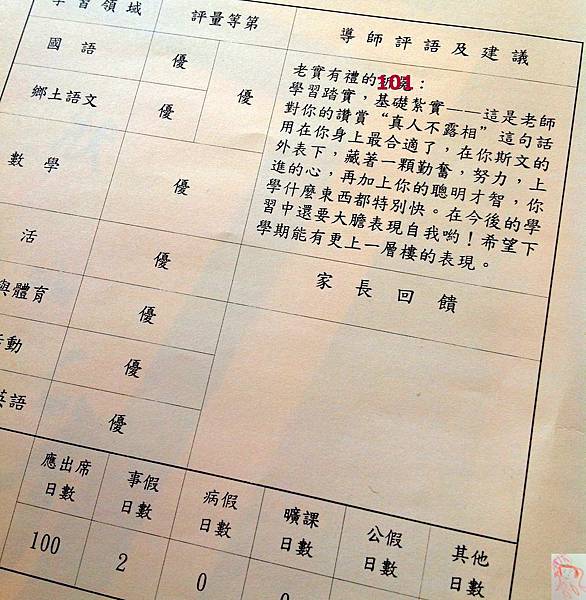 學習領域 評量等第 導師評語及建議
國語 優
鄉土語文 優 優
數學 優
活 優
與體育 優
活動 優
英語 優
老實有禮的101：
學習踏實，基礎紮實——這是老師
對你的讚賞“真人不露相”這句話
用在你身上最合適了，在你斯文的
外表下，藏著一顆勤奮，努力，上
進的心，再加上你的聰明才智，你
學什麼東西都特別快。在今後的學
習中還要大膽表現自我喲！希望下
學期能有更上一層樓的表現。
家長回饋
應出席日數 事假日數 病假日數 曠課日數 公假日數 其他日數
100 2 0 0